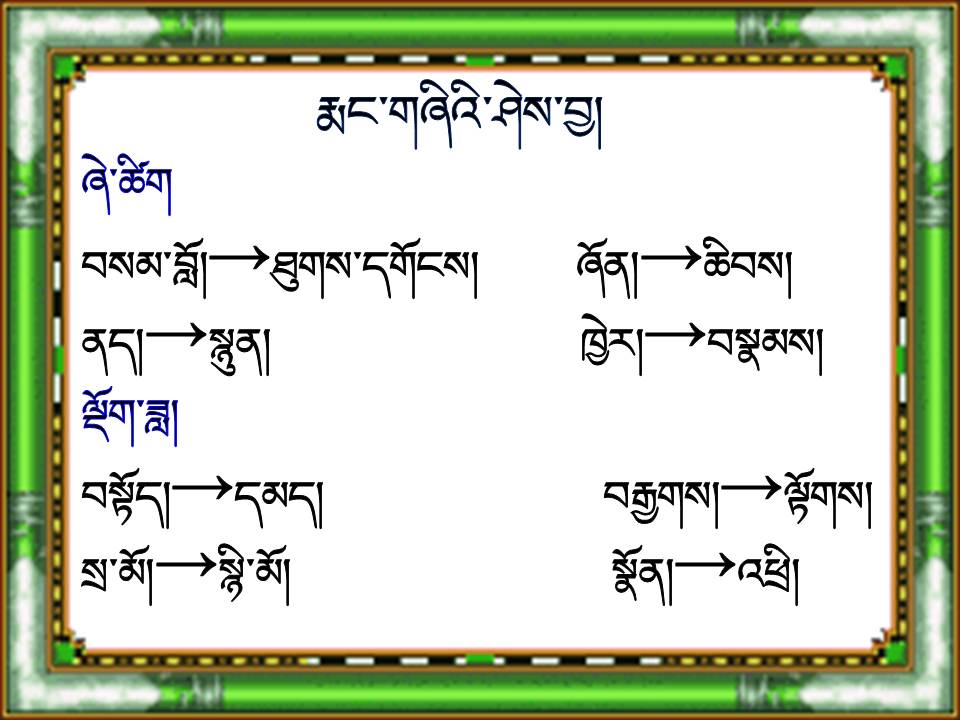 རྨང་གཞིའི་ཤེས་བྱ།
ཞེ་ཚིག
བསམ་བློ།→ཐུགས་དགོངས། ཞོན།→ཆིབས།
ནད།→སྙུན། ཁྱེར།→བསྣམས།
ལྡོག་ཟླ།
བསྟོད།→དམད། བརྒྱགས།→ལྟོགས།
སྲ་མོ།→སྙི་མོ། སྣོན།→འཕྲི།